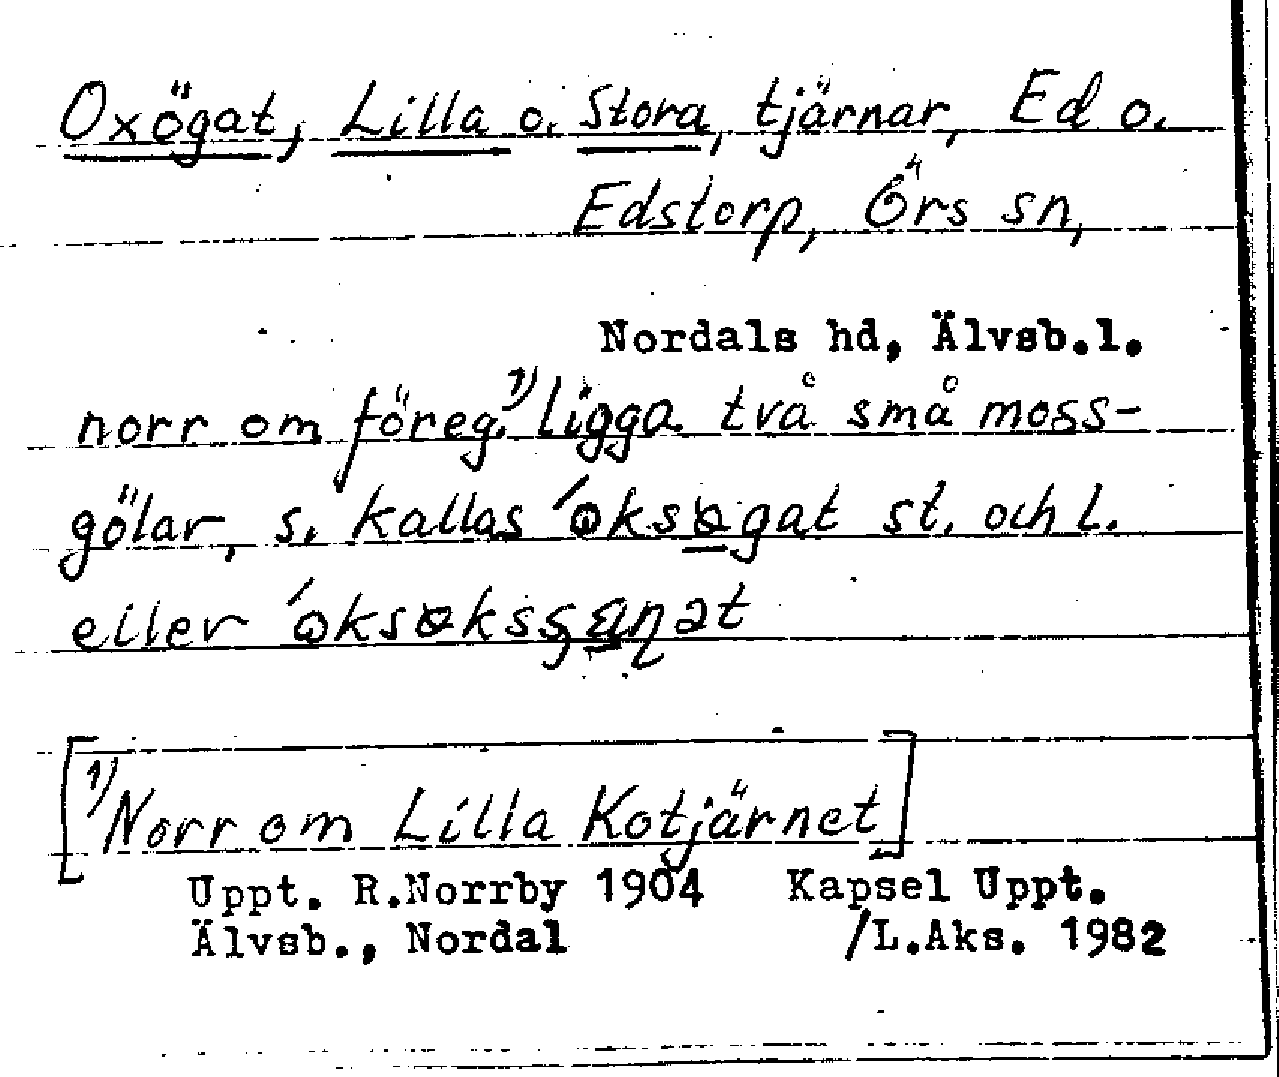 Oxögat, Lilla o. Stora, tjärnar, Ed o.
Edstorp, Örs sn,
Nordals hd, Älvsb.l.
norr om föreg.¹⁾ ligga två små moss-
gölar, s. kallas st. och l.
eller
[¹⁾Norr om Lilla Kotjärnet]
Uppt. R.Norrby 1904 Kapsel Uppt.
Älvsb., Nordal /L.Aks. 1982